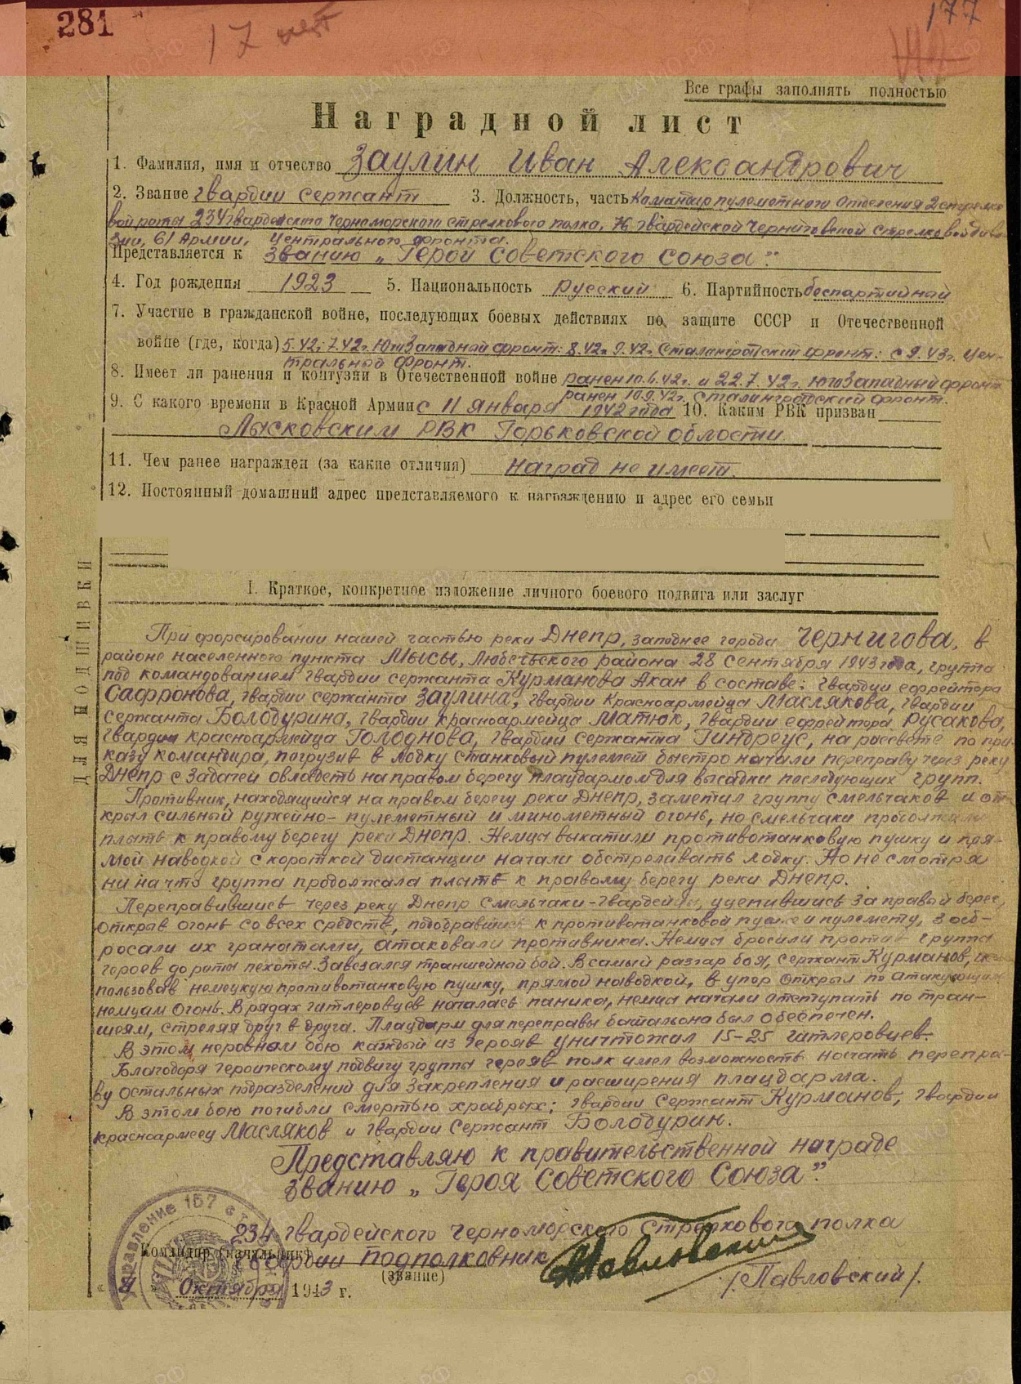 281
17 лет
177
Все графы заполнять полностью
Наградной лист
1. Фамилия, имя и отчество Заулин Иван Александрович
2. Звание гвардии сержант 3. Должность, часть Командир пулеметного отделения 2 стрелко
вой роты 234 гвардейского Черноморского стрелкового полка, 76 гвардейской Черниговской стрелковой диви
зии, 61 Армии, Центрального фронта.
Представляется к званию „Герой Советского Союза".
4. Год рождения 1923 5. Национальность русский 6. Партийность беспартийный
7. Участие в гражданской войне, последующих боевых действиях по защите СССР и Отечественной
войне (где, когда) 5.42г. 7.42г. Юго Западный фронт: 8.42г. 9.42г. Сталингродский фронт: с 9.43г. Цен-
тральной фронт.
8. Имеет ли ранения и контузии в Отечественной войне ранен 10.6.42г. и 22.7.42г. Юго Западный фронт
ранен 10.9.42г. Сталинградский фронт.
9. С какого времени в Красной Армии с 11 января 1942 года 10. Каким РВК призван
Лысковским РВК Горьковской области
11. Чем ранее награжден (за какие отличия) наград не имеет.
12. Постоянный домашний адрес представляемого к награждению и адрес его семьи
ДЛЯ ПОДШИВКИ
I. Краткое, конкретное изложение личного боевого подвига или заслуг
При форсировании нашей частью реки Днепр, западнее города Чернигова, в
районе населенного пункта Мысы, Любечьского района 28 сентября 1943 года, группа
под командованием гвардии сержанта Курманова Акан в составе: гвардии ефрейтора
Сафронова, гвардии сержанта Заулина, гвардии Красноармейца Маслякова, гвардии
сержанта Болодурина, гвардии красноармейца Матюк, гвардии ефрейтора Русакова,
гвардии красноармейца Голоднова, гвардии сержанта Гиндреус, на рассвете по при-
казу командира, погрузив в лодку станковый пулемет быстро начали переправу через реку
Днепр с задачей овладеть на правом берегу плацдармом для высадки последующих групп.
Противник, находящийся на правом берегу реки Днепр, заметил группу смельчаков и от-
крыл сильный ружейно-пулеметный и минометный огонь, но смельчаки продолжали
плыть к правому берегу реки Днепр. Немцы выкатили противотанковую пушку и пря-
мой наводкой с короткой дистанции начали обстреливать лодку. Но не смотря
ни на что группа продолжала плыть к правому берегу реки Днепр.
Переправившись через реку Днепр смельчаки-гвардейцы, уцепившись за правой берег,
открыв огонь со всех средств, подобравшись к противотанковой пушке и пулемету, забр-
росали их гранатами, атаковали противника. Немцы бросили против группы
героев до роты пехоты. Завезался траншейной бой. В самый разгар боя, сержант Курманов, ис-
пользовав немецкую противотанковую пушку, прямой наводкой, в упор открыл по атакующим
немцам огонь. В рядах гитлеровцев началась паника, немцы начали отступать по тран-
шеям, стреляя друг в друга. Плацдарм для переправы батальона был обеспечен.
В этом неровном бою каждый из героев уничтожил 15-25 гитлеровцев.
Благодаря героическому подвигу группы героев полк имел возможность начать перепра-
ву остальных подразделений для закрепления и расширения плацдарма.
В этом бою погибли смертью храбрых: гвардии Сержант Курманов, гвардии
красноармеец Масляков и гвардии Сержант Болодурин.
Представляю к правительственной награде
званию „Героя Советского Союза".
234 гвардейского Черноморского Стрелкового полка
Командир (начальник)
гвардии подполковник
(звание)
/Павловский/.
4 Октября 1943 г.